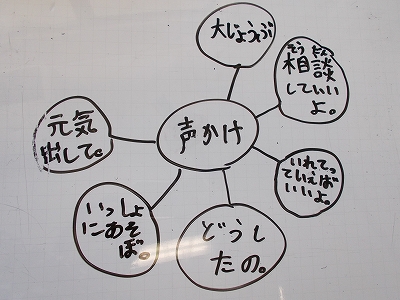 声かけ
大じょうぶ
そうだん
相談
していい
よ。
いれてっ
ていえば
いいよ。
どうし
たの。
いっしょ
にあそ
ぼ。
元気
出して。